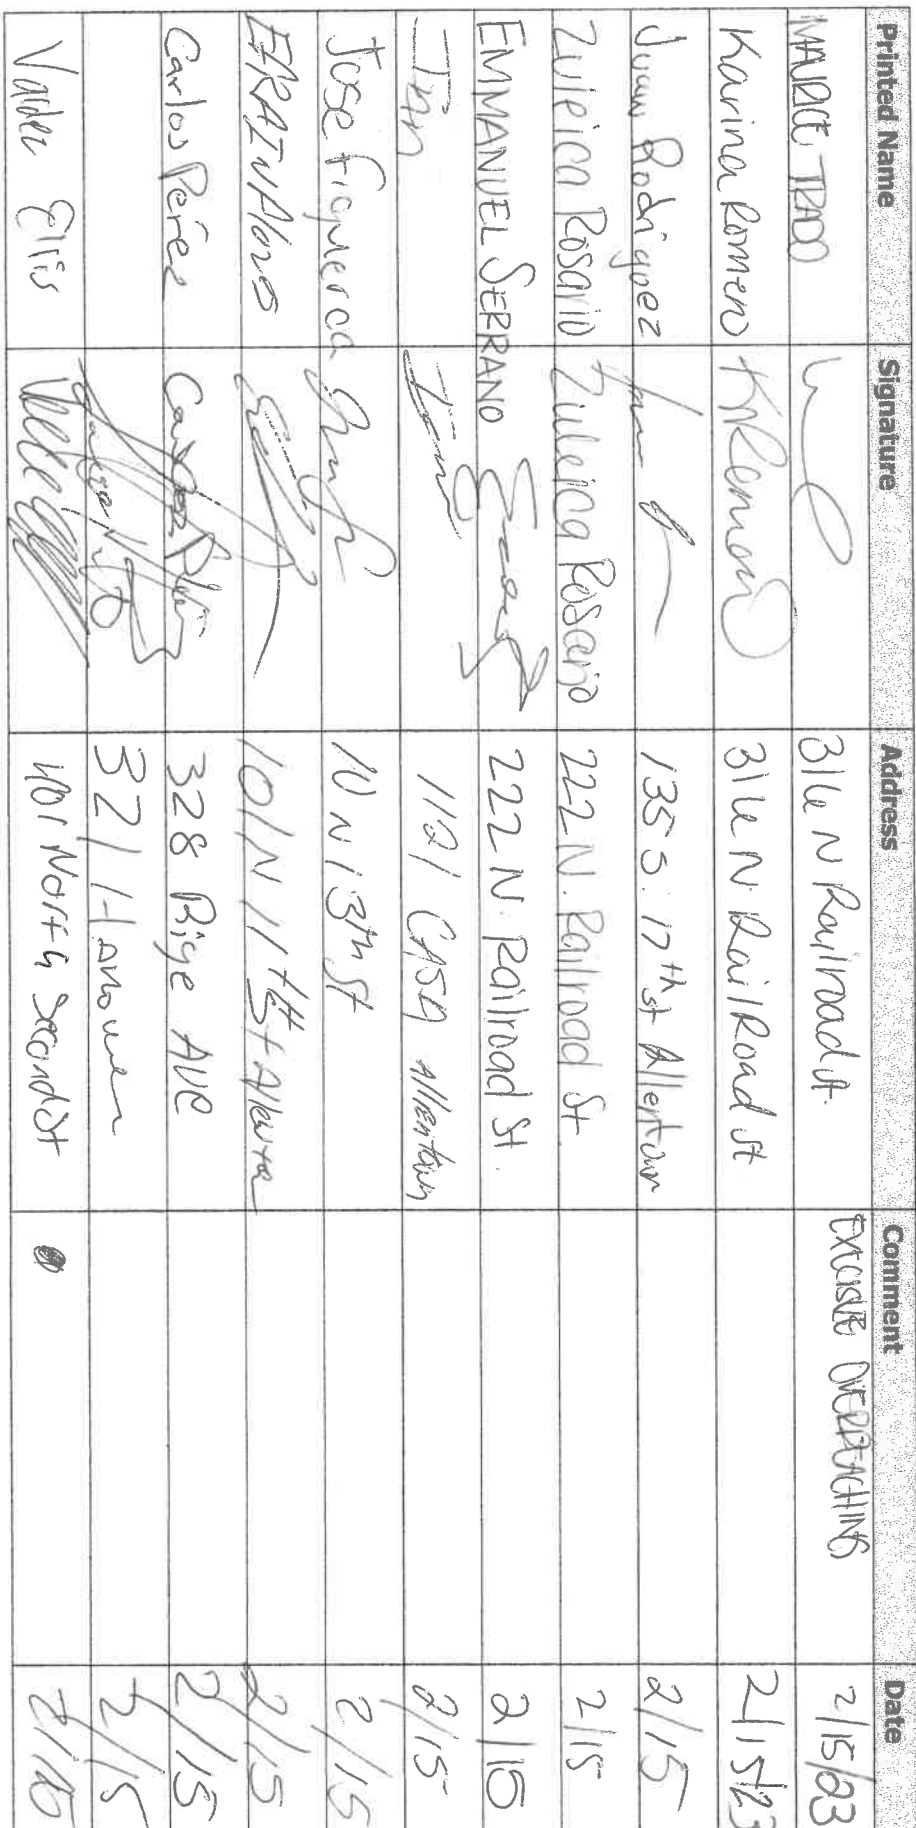 Printed Name Signature Address Comment Date
MAURICE TIRADO 316 N Railroad St. EXCESSIVE OVERREACHING 2/15/23
Karina Romero KRomero 316 N. RailRoad St 2/15/23
Juan Rodriguez 135 S. 17th st Allentown 2/15
Zuleica Rosario Zuleica Rosario 222 N. Railroad St. 2/15
EMMANUEL SERRANO 222 N. Railroad St. 2/15
1121 Allentown 2/15
Jose Figueroa 10 N 13th St 2/15
101 N 11th St 2/15
Carlos Perez Carlos 328 Rige AVE 2/15
321 Hanover 2/15
Valdez Ellis 401 North Second St 2/15